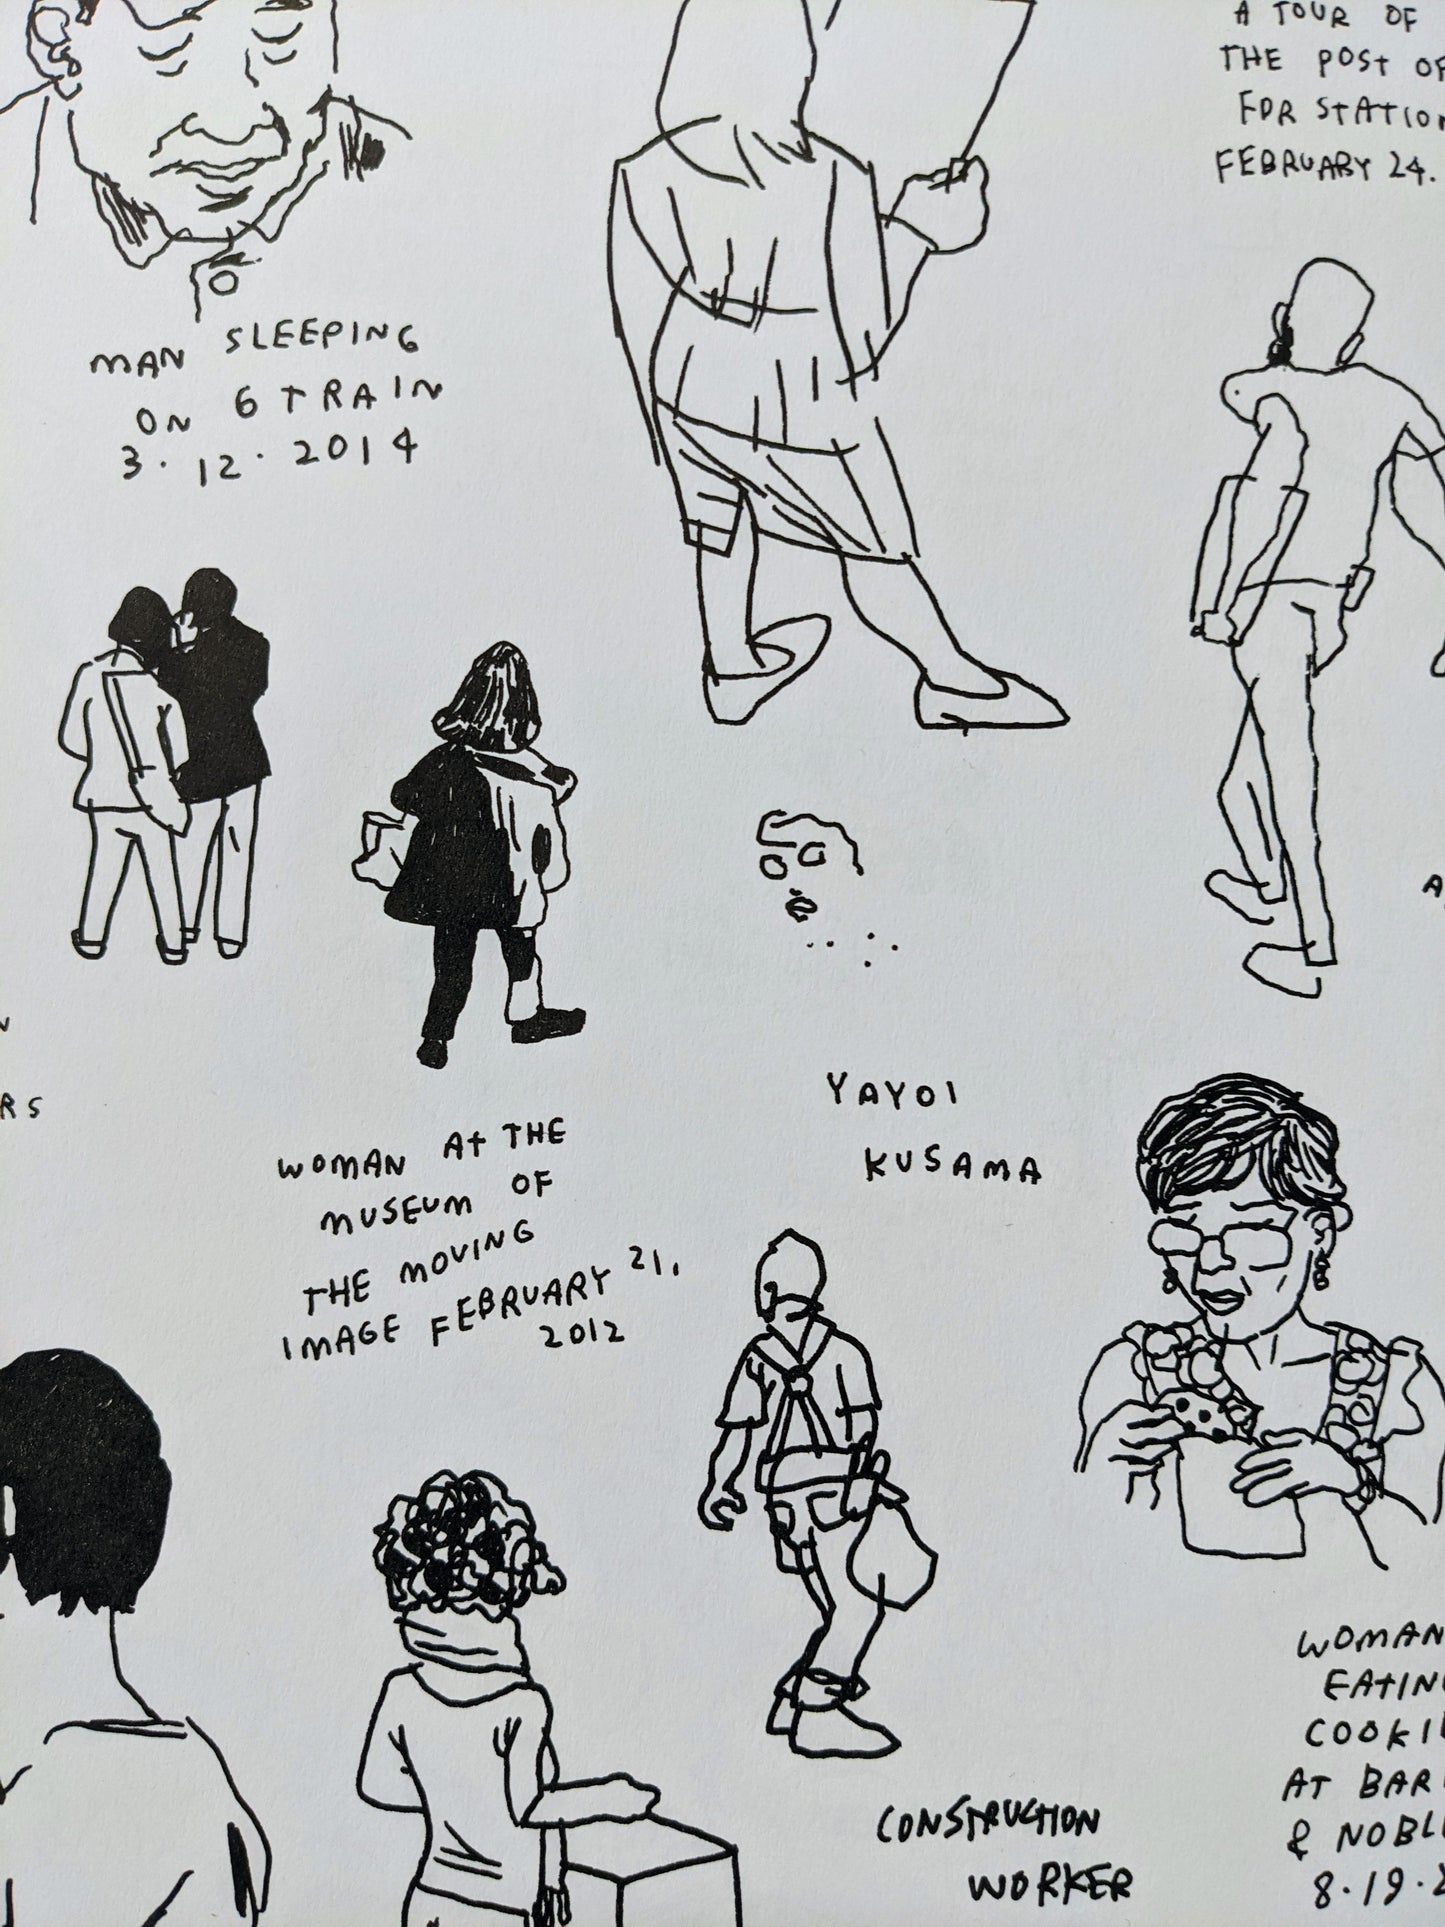 A TOUR OF
THE POST
FDR STATION
FEBRUARY 24.
MAN SLEEPING
ON 6 TRAIN
3.12.2014
RS
WOMAN AT THE
MUSEUM OF
THE MOVING
IMAGE FEBRUARY 21,
2012
YAYOI
KUSAMA
CONSTRUCTION
WORKER
WOMAN
EATIN
COOKI
AT BAR
& NOBL
8.19.2